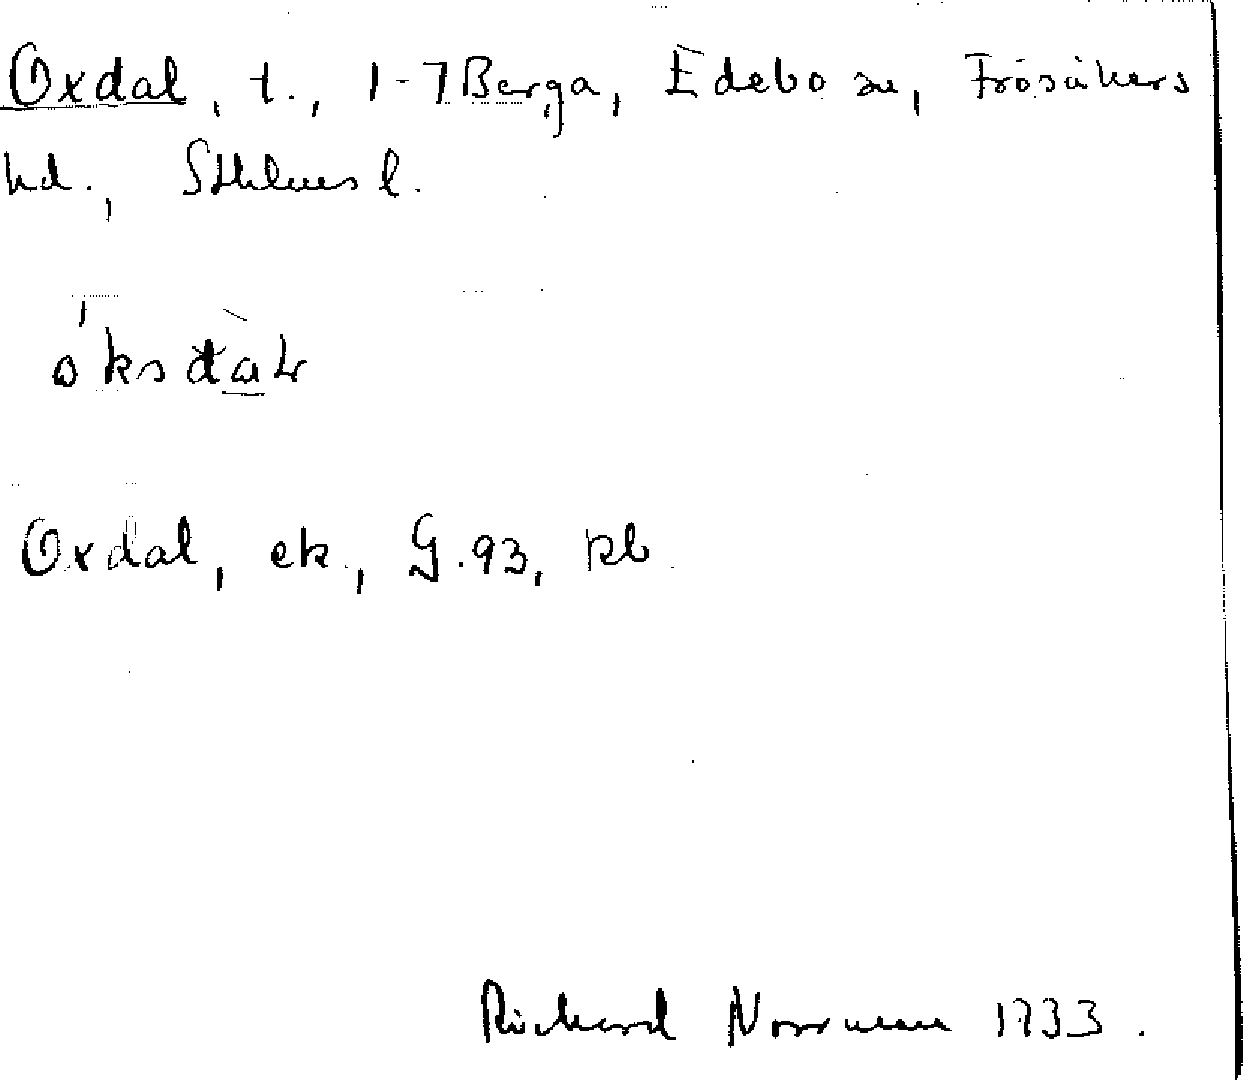 Oxdal, t., 1-7 Berga, Edebo sn, Frösåkers
hd., Sthlms l.
óksdàr
Oxdal, ek., G.93, kb
Richard Norrman 1933.